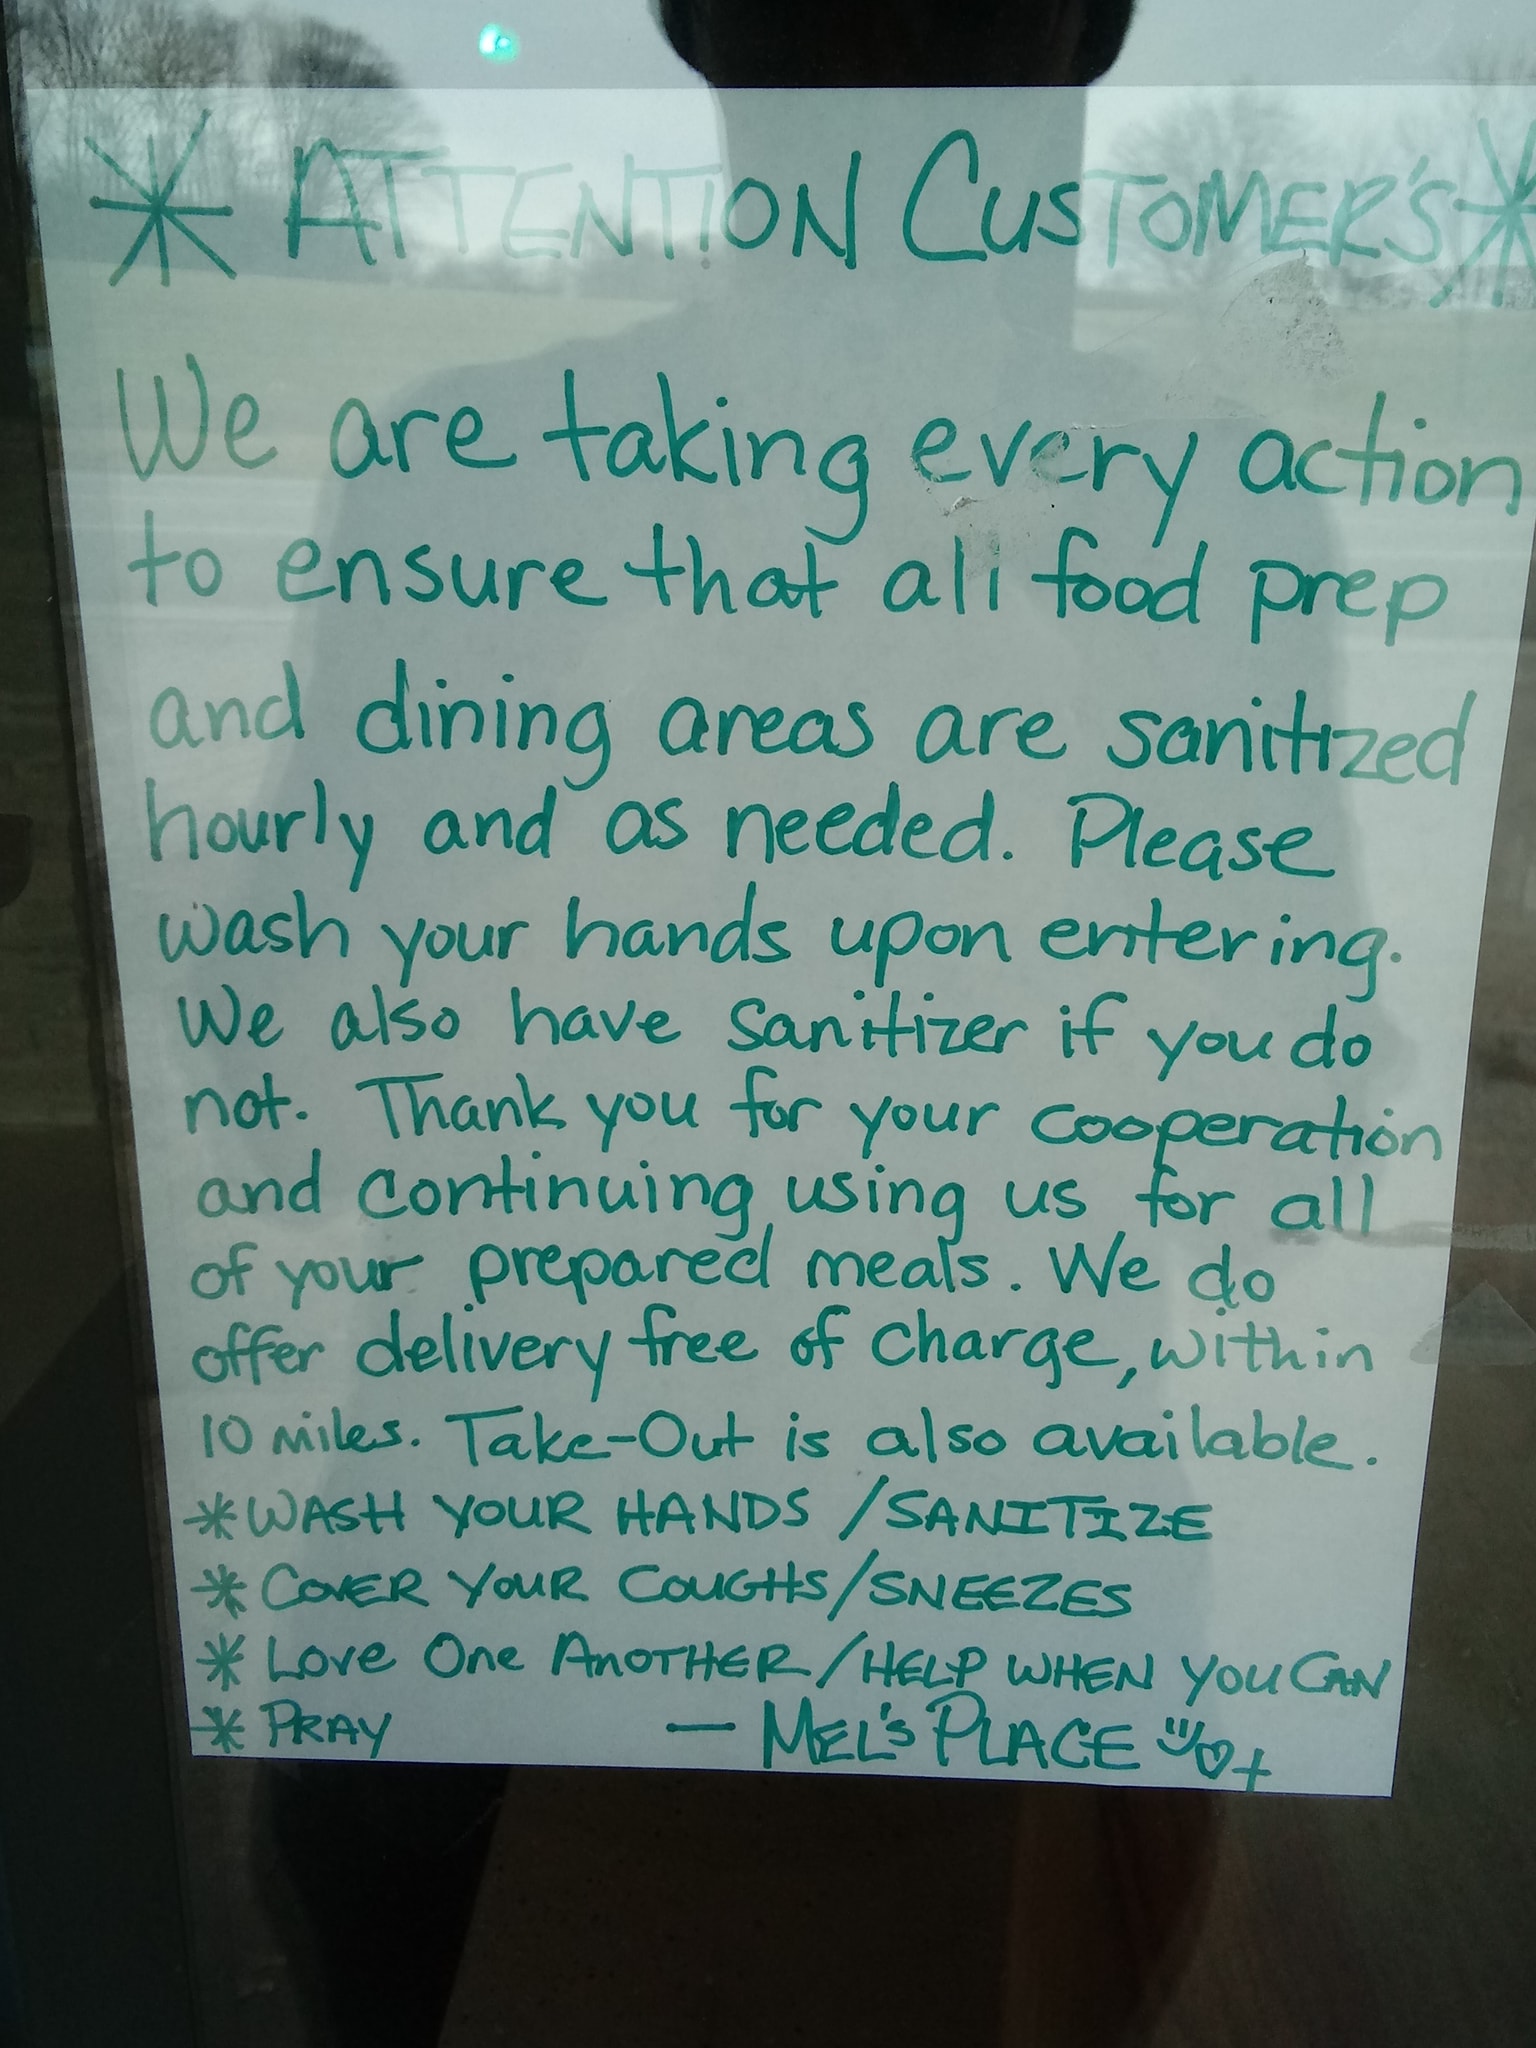 * ATTENTION CUSTOMER'S *
We are taking every action
to ensure that all food prep
and dining areas are sanitized
hourly and as needed. Please
wash your hands upon entering.
We also have sanitizer if you do
not. Thank you for your cooperation
and continuing using us for all
of your prepared meals. We do
offer delivery free of charge, within
10 miles. Take-Out is also available.
* WASH YOUR HANDS / SANITIZE
* COVER YOUR COUGHS/SNEEZES
* LOVE ONE ANOTHER/HELP WHEN YOU CAN
* PRAY — MEL'S PLACE